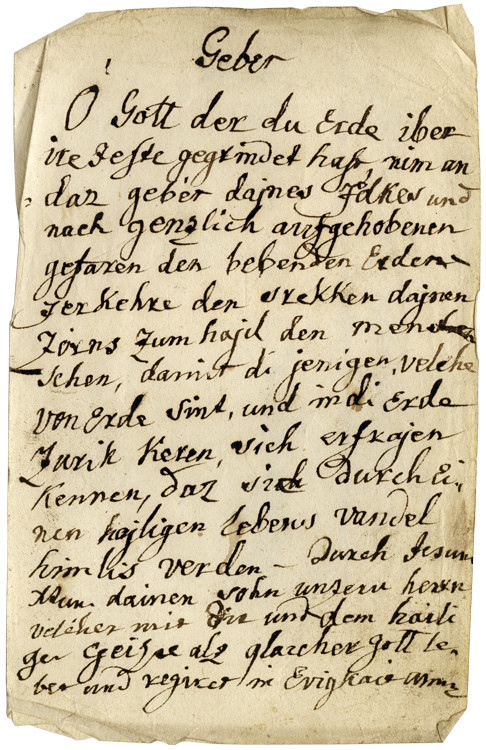 Geber
O Gott der du Erde iber
ire feste gegrindet hast, nim an
daz geber dajnes folkes und
nach genzlich aufgehobenen
gefaren den bebenden Erden
ferkehre den srekken dajnen
Zorns zum hajil den menschen
schen, damit di jenigen, velche
von Erde sint, und in di Erde
Zurik Keren, sich erfrajen
Kennen, daz sich durch Ei-
nen hejligen lebens vandel
himlis verden – Durch Jesum
dainen sohn unzern herrn
velcher mit Dir und dem haili
ger Geiste alz glaicher Gott le-
bet und regiret in Evigkait